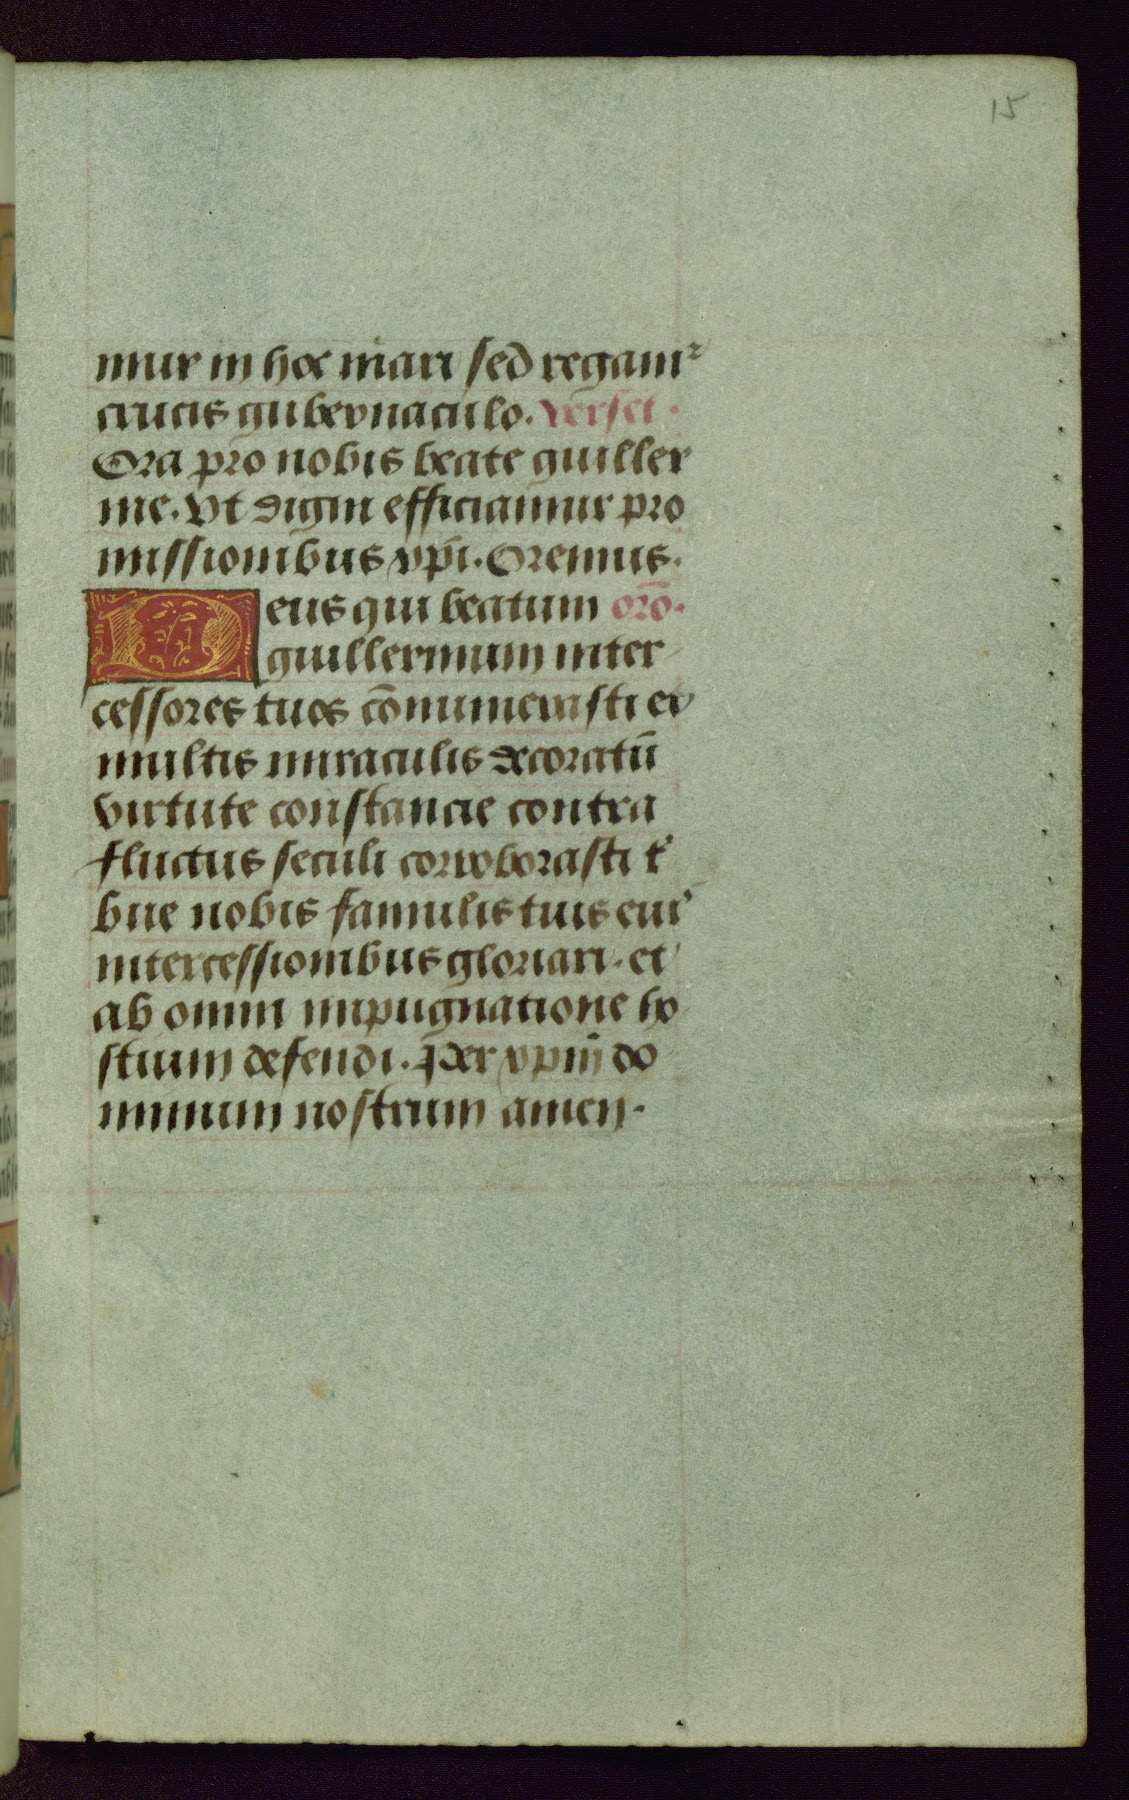 15
mur in hoc mari sed regam²
crucis gubernaculo. Verset.
Ora pro nobis beate guiller
me. Vt digni efficiamur pro
missionibus xp̄i. Oremus.
Deus qui beatum or̄o.
guillermum inter
cessores tuos cōnumerasti et
multis miraculis decoratū
virtute constancie contra
fluctus seculi corroborasti tⁱ
bue nobis famulis tuis eius
intercessionibus gloriari. et
ab omni impugnatione ho
stium defendi. Per xp̄m do
minum nostrum amen.